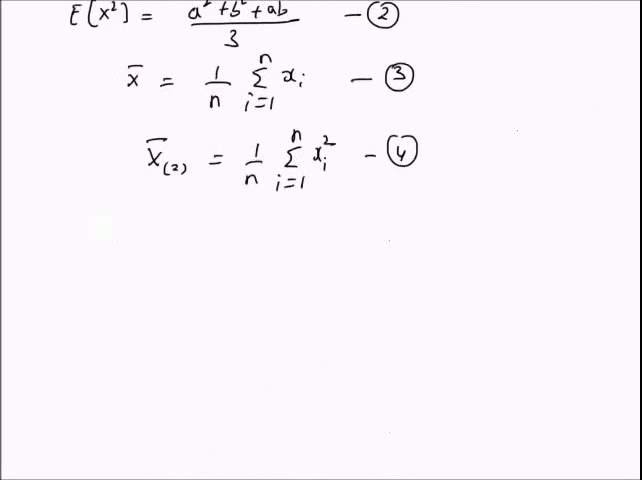 E[x²] = a² + b² + ab / 3 — ②
x̄ = 1/n Σ_{i=1}^{n} x_i — ③
X̄_(2) = 1/n Σ_{i=1}^{n} x_i² — ④